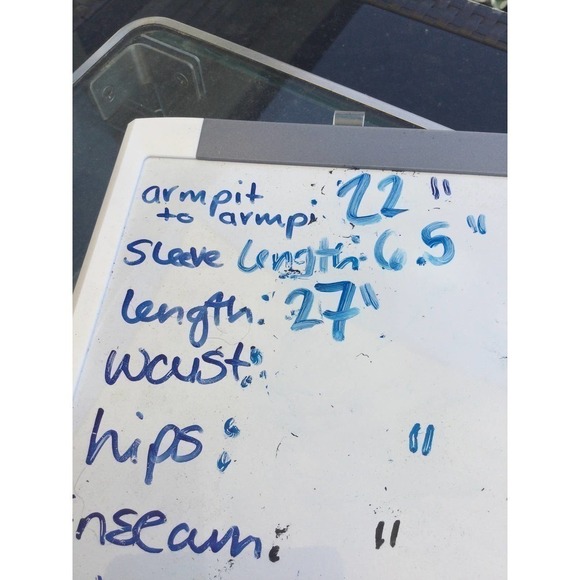 armpit
to armpi: 22"
sleeve length: 6.5"
length: 27"
waist:
hips: "
nseam: "